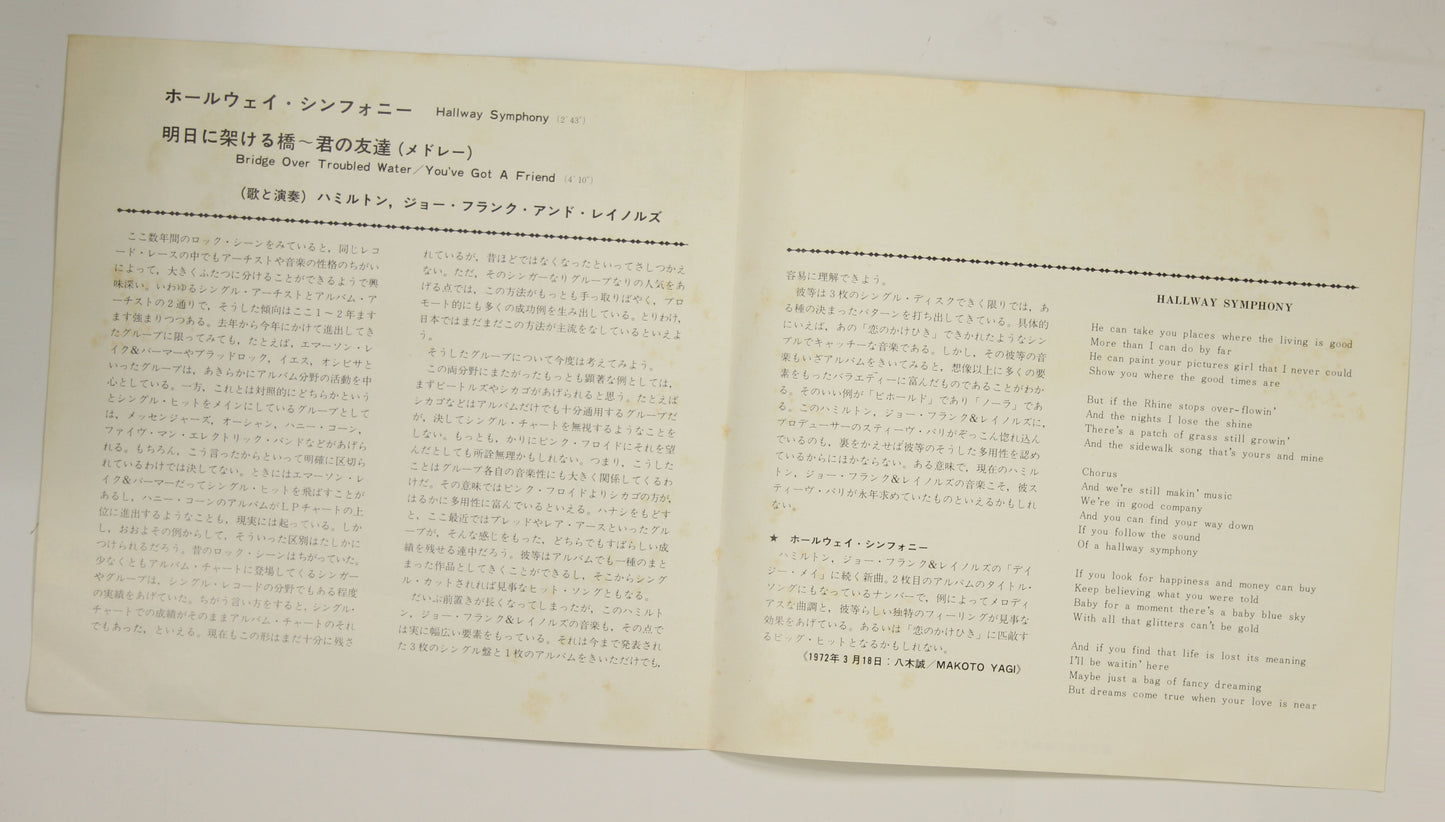 ホールウェイ・シンフォニー Hallway Symphony (2′43″)
明日に架ける橋～君の友達（メドレー）
Bridge Over Troubled Water／You've Got A Friend (4′10″)
（歌と演奏）ハミルトン，ジョー・フランク・アンド・レイノルズ
ここ数年間のロック・シーンをみていると，同じレコ
ード・レースの中でもアーチストや音楽の性格のちがい
によって，大きくふたつに分けることができるようで興
味深い。いわゆるシングル・アーチストとアルバム・ア
ーチストの２通りで，そうした傾向はここ１～２年ます
ます強まりつつある。去年から今年にかけて進出してき
たグループに限ってみても，たとえば，エマーソン・レ
イク&パーマーやブラッドロック，イエス，オシビサと
いったグループは，あきらかにアルバム分野の活動を中
心としている。一方，これとは対照的にどちらかという
とシングル・ヒットをメインにしているグループとして
は，メッセンジャーズ，オーシャン，ハニー・コーン，
ファイヴ・マン・エレクトリック・バンドなどがあげら
れる。もちろん，こう言ったからといって明確に区切ら
れているわけでは決してない。ときにはエマーソン・レ
イク&パーマーだってシングル・ヒットを飛ばすことが
あるし，ハニー・コーンのアルバムがＬＰチャートの上
位に進出するようなことも，現実には起っている。しか
し，おおよその例からして，そういった区別はたしかに
つけられるだろう。昔のロック・シーンはちがっていた。
少なくともアルバム・チャートに登場してくるシンガー
やグループは，シングル・レコードの分野でもある程度
の実績をあげていた。ちがう言い方をすると，シングル・
チャートでの成績がそのままアルバム・チャートのそれ
でもあった，といえる。現在もこの形はまだ十分に残さ
れているが，昔ほどではなくなったといってさしつかえ
ない。ただ，そのシンガーなりグループなりの人気をあ
げる点では，この方法がもっとも手っ取りばやく，プロ
モート的にも多くの成功例を生み出している。とりわけ，
日本ではまだまだこの方法が主流をなしているといえよ
う。
そうしたグループについて今度は考えてみよう。
この両分野にまたがったもっとも顕著な例としては，
まずビートルズやシカゴがあげられると思う。たとえば
シカゴなどはアルバムだけでも十分通用するグループだ
が，決してシングル・チャートを無視するようなことを
しない。もっとも，かりにピンク・フロイドにそれを望
んだとしても所詮無理かもしれない。つまり，こうした
ことはグループ各自の音楽性にも大きく関係してくるわ
けだ。その意味ではピンク・フロイドよりシカゴの方が，
はるかに多用性に富んでいるといえる。ハナシをもどす
と，ここ最近ではブレッドやレア・アースといったグル
ープが，そんな感じをもった，どちらでもすばらしい成
績を残せる連中だろう。彼等はアルバムでも一種のまと
まった作品としてきくことができるし，そこからシング
ル・カットされれば見事なヒット・ソングともなる。
だいぶ前置きが長くなってしまったが，このハミルト
ン，ジョー・フランク&レイノルズの音楽も，その点で
は実に幅広い要素をもっている。それは今まで発表され
た３枚のシングル盤と１枚のアルバムをきいただけでも，
容易に理解できよう。
彼等は３枚のシングル・ディスクできく限りでは，あ
る種の決まったパターンを打ち出してきている。具体的
にいえば，あの「恋のかけひき」できかれたようなシン
プルでキャッチーな音楽である。しかし，その彼等の音
楽もいざアルバムをきいてみると，想像以上に多くの要
素をもったバラエティーに富んだものであることがわか
る。そのいい例が「ビホールド」であり「ノーラ」であ
る。このハミルトン，ジョー・フランク&レイノルズに，
プロデューサーのスティーヴ・バリがぞっこん惚れ込ん
でいるのも，裏をかえせば彼等のそうした多用性を認め
ているからにほかならない。ある意味で，現在のハミル
トン，ジョー・フランク&レイノルズの音楽こそ，彼ス
ティーヴ・バリが永年求めていたものといえるかもしれ
ない。
★ ホールウェイ・シンフォニー
ハミルトン，ジョー・フランク&レイノルズの「デイ
ジー・メイ」に続く新曲。２枚目のアルバムのタイトル・
ソングにもなっているナンバーで，例によってメロディ
アスな曲調と，彼等らしい独特のフィーリングが見事な
効果をあげている。あるいは「恋のかけひき」に匹敵す
るビッグ・ヒットとなるかもしれない。
《1972年３月18日：八木誠／MAKOTO YAGI》
HALLWAY SYMPHONY
He can take you places where the living is good
More than I can do by far
He can paint your pictures girl that I never could
Show you where the good times are
But if the Rhine stops over-flowin'
And the nights I lose the shine
There's a patch of grass still growin'
And the sidewalk song that's yours and mine
Chorus
And we're still makin' music
We're in good company
And you can find your way down
If you follow the sound
Of a hallway symphony
If you look for happiness and money can buy
Keep believing what you were told
Baby for a moment there's a baby blue sky
With all that glitters can't be gold
And if you find that life is lost its meaning
I'll be waitin' here
Maybe just a bag of fancy dreaming
But dreams come true when your love is near